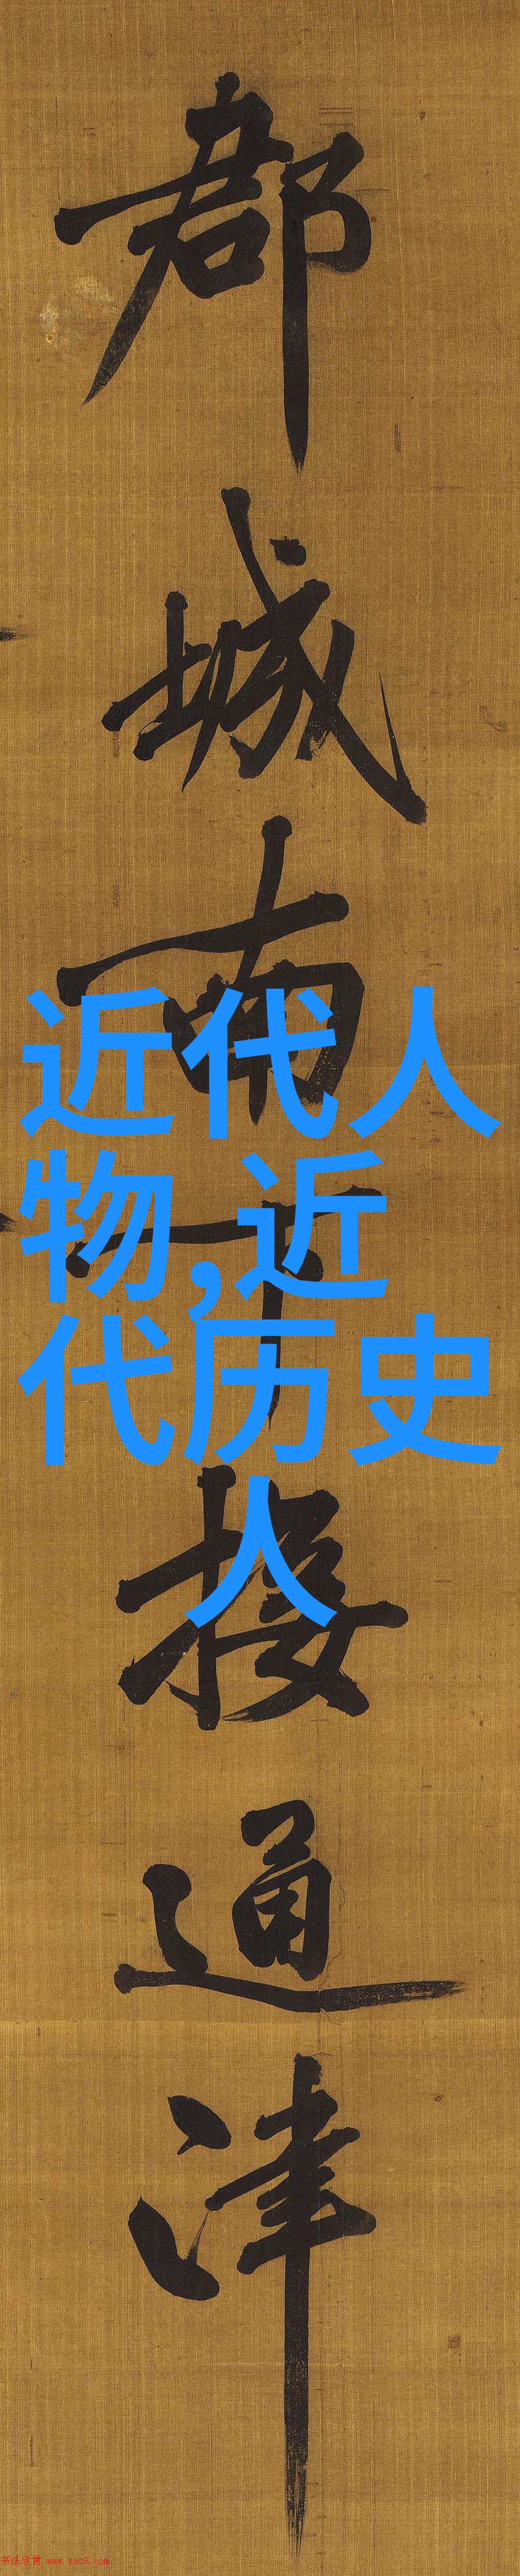 都城南下接通津
近代人
物,近
代历史
人
书法欣赏 www.yac8.com